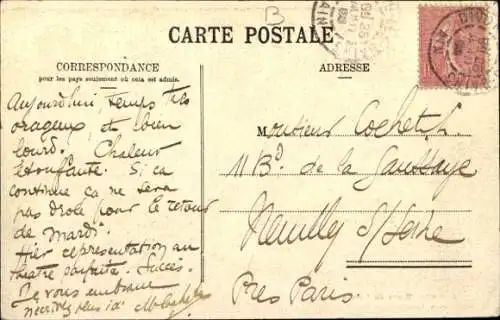 B
CARTE POSTALE
CORRESPONDANCE
pour les pays seulement où cela est admis.
ADRESSE
Aujourd'hui temps très
orageux, et bien
lourd. Chaleur
étouffante. Si ça
continue ça ne sera
pas drôle pour le retour
de Mardi.
Hier représentation au
théâtre Succès.
Je vous embrasse
M
Monsieur Cochet
11 Bd de la Saussaye
Neuilly s/Seine
Près Paris
DIV
AIN